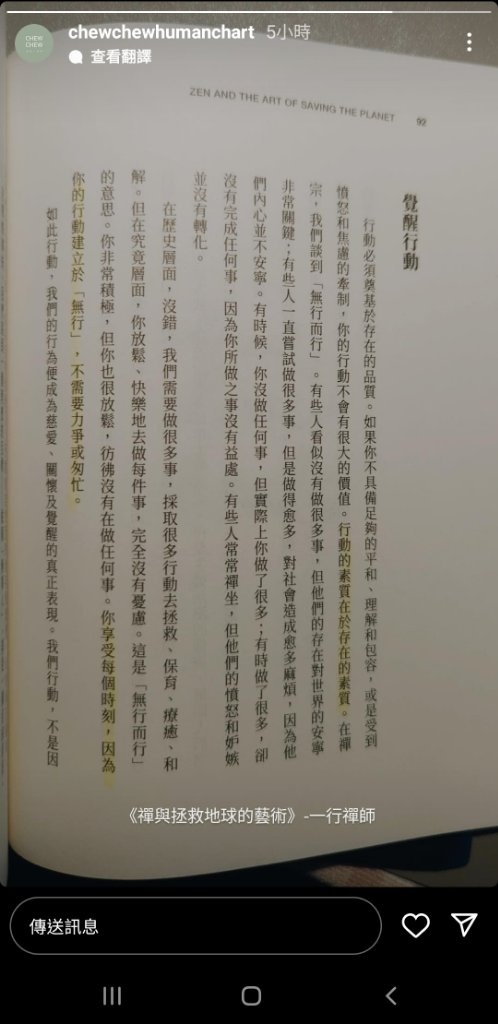 chewchewhumanchart 5小時
查看翻譯
ZEN AND THE ART OF SAVING THE PLANET 92
覺醒行動
行動必須奠基於存在的品質。如果你不具備足夠的平和、理解和包容，或是受到
憤怒和焦慮的牽制，你的行動不會有很大的價值。行動的素質在於存在的素質。在禪
宗，我們談到「無行而行」。有些人看似沒有做很多事，但他們的存在對世界的安寧
非常關鍵；有些人一直嘗試做很多事，但是做得愈多，對社會造成愈多麻煩，因為他
們內心並不安寧。有時候，你沒做任何事，但實際上你做了很多；有時做了很多，卻
沒有完成任何事，因為你所做之事沒有益處。有些人常常禪坐，但他們的憤怒和妒嫉
並沒有轉化。
在歷史層面，沒錯，我們需要做很多事，採取很多行動去拯救、保育、療癒、和
解。但在究竟層面，你放鬆、快樂地去做每件事，完全沒有憂慮。這是「無行而行」
的意思。你非常積極，但你也很放鬆，彷彿沒有在做任何事。你享受每個時刻，因為
你的行動建立於「無行」，不需要力爭或匆忙。
如此行動，我們的行為便成為慈愛、關懷及覺醒的真正表現。我們行動，不是因
《禪與拯救地球的藝術》-一行禪師
傳送訊息